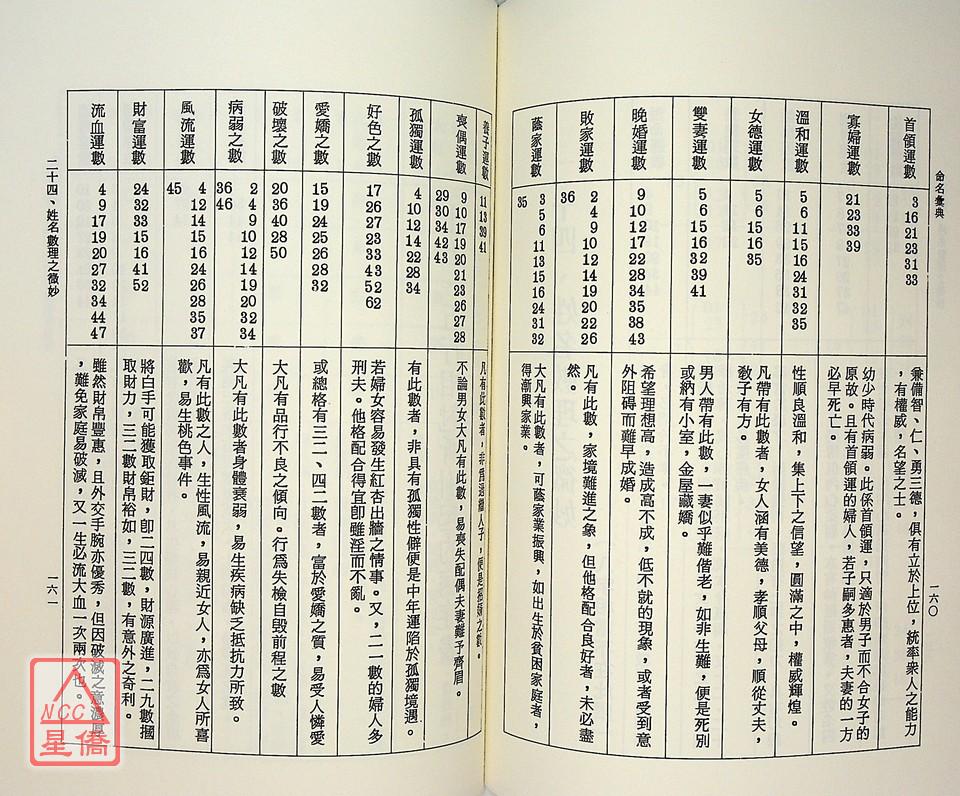 命名彙典
一六〇
首領運數
3 16 21 23 31 33
兼備智、仁、勇三德，俱有立於上位，統率衆人之能力
，有權威，名望之士。
寡婦運數
21 23 33 39
幼少時代病弱。此係首領運，只適於男子而不合女子的
原故。且有首領運的婦人，若子嗣多惠者，夫妻的一方
必早死亡。
溫和運數
5 6 11 15 16 24 31 32 35
性順良溫和，集上下之信望，圓滿之中，權威輝煌。
女德運數
5 6 15 16 35
凡帶有此數者，女人涵有美德，孝順父母，順從丈夫，
敎子有方。
雙妻運數
5 6 15 16 32 39 41
男人帶有此數，一妻似乎難偕老，如非生難，便是死別
或納有小室，金屋藏嬌。
晚婚運數
9 10 12 17 22 28 34 35 38 43
希望理想高，造成高不成，低不就的現象，或者受到意
外阻碍而難早成婚。
敗家運數
2 4 9 10 12 14 19 20 22 26
36
凡有此數，家境難進之象，但他格配合良好者，未必盡
然。
藝家運數
3 5 6 11 13 15 16 24 31 32
35
大凡有此數者，可藝家業振興，如出生於貧困家庭者，
得漸興家業。
養子運數
11 13 39 41
喪偶運數
9 10 17 19 20 21 23 26 27 28
29 30 34 42 43
不論男女大凡有此數，易喪失配偶夫妻難予齊眉。
孤獨運數
4 10 12 14 22 28 34
有此數者，非具有孤獨性僻便是中年運陷於孤獨境遇。
好色之數
17 26 27 23 33 43 52 62
若婦女容易發生紅杏出牆之情事。又，二一數的婦人多
刑夫。他格配合得宜卽雖淫而不亂。
愛嬌之數
15 19 24 25 26 28 32
或總格有三二、四二數者，富於愛嬌之質，易受人憐愛
破壞之數
20 36 40 28 50
大凡有品行不良之傾向。行爲失檢自毀前程之數
病弱之數
2 4 9 10 12 14 19 20 32 34
36 46
大凡有此數者身體衰弱，易生疾病缺乏抵抗力所致。
風流運數
4 12 14 15 16 24 26 28 35 37
45
凡有此數之人，生性風流，易親近女人，亦爲女人所喜
歡，易生桃色事件。
財富運數
24 32 33 15 16 41 52
將白手可能獲取鉅財，卽二四數，財源廣進，二九數摑
取財力，三二數財帛裕如，三三數，有意外之奇利。
流血運數
4 9 17 19 20 27 32 34 44 47
雖然財帛豐惠，且外交手腕亦優秀，但因破滅之意濃厚
，難免家庭易破滅，又一生必流大血一次兩次也。
二十四、姓名數理之微妙
一六一
NCC
星僑